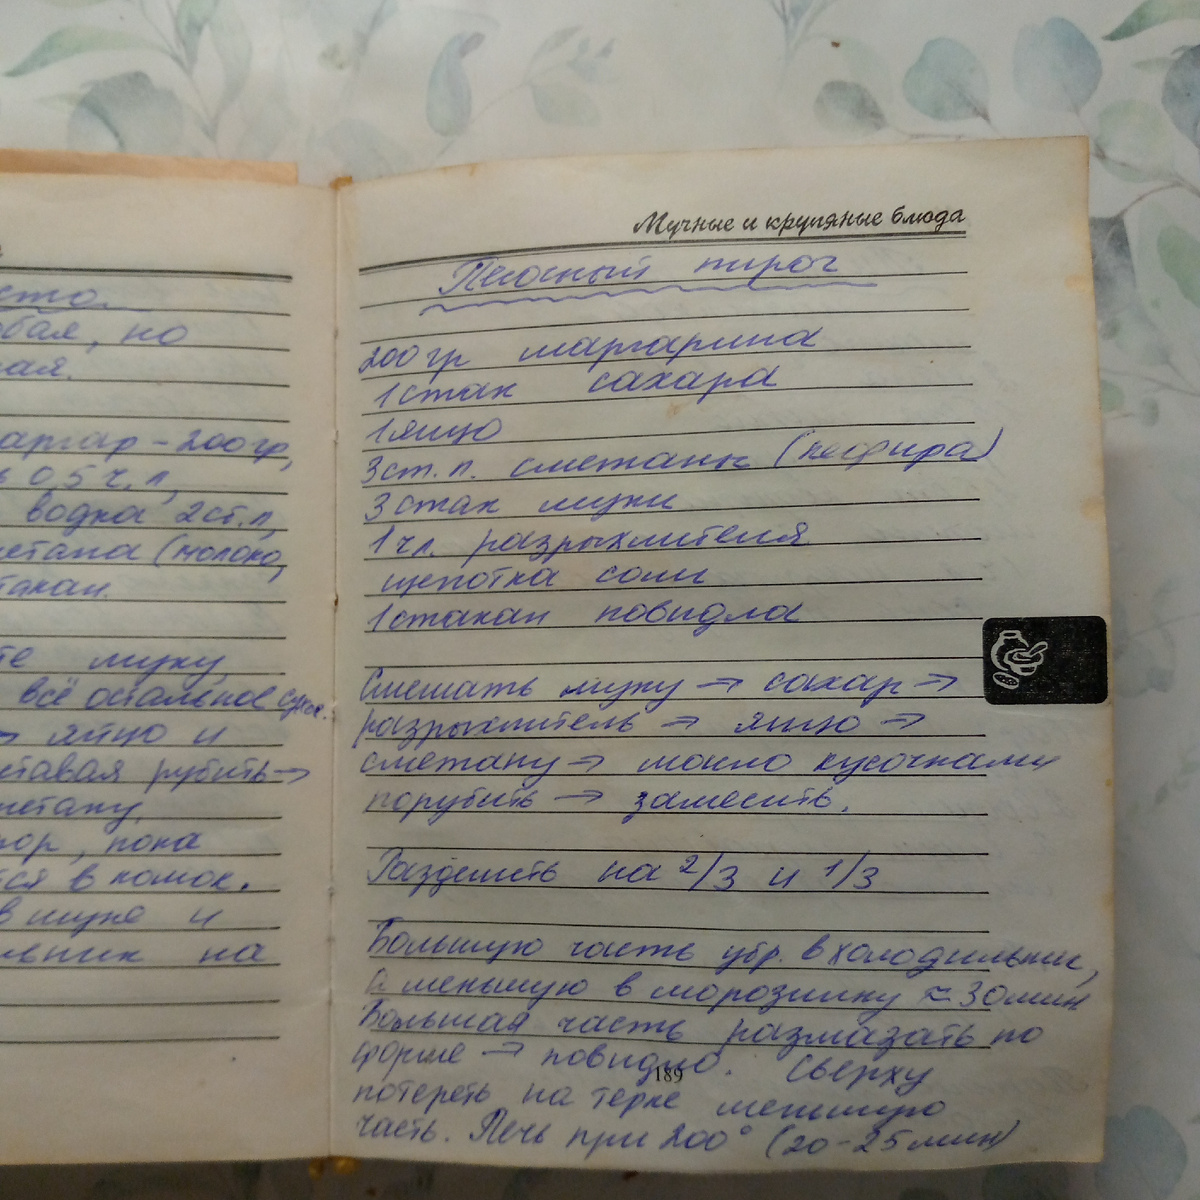 сто.
бая, но
ая.
аргар - 200 гр,
ь 0,5 ч.л,
водка 2 ст.л,
метана (молоко,
такан.
те муку,
всё остальное сухое.
→ яйцо и
ставая рубить →
метану.
тор, пока
тся в комок.
в муке и
льник на
Мучные и крупяные блюда
Песочный пирог
200 гр маргарина
1 стак сахара
1 яйцо
3 ст.л. сметаны (кефира)
3 стак муки
1 чл. разрыхлителя
щепотка соли
1 стакан повидла
Смешать муку → сахар →
разрыхлитель → яйцо →
сметану → масло кусочками
порубить → замесить.
Разделить на 2/3 и 1/3
Большую часть убр. в холодильник,
а меньшую в морозилку ≈ 30 мин
Большая часть размазать по
форме → повидло. Сверху
189
потереть на терке меньшую
часть. Печь при 200° (20-25 мин)